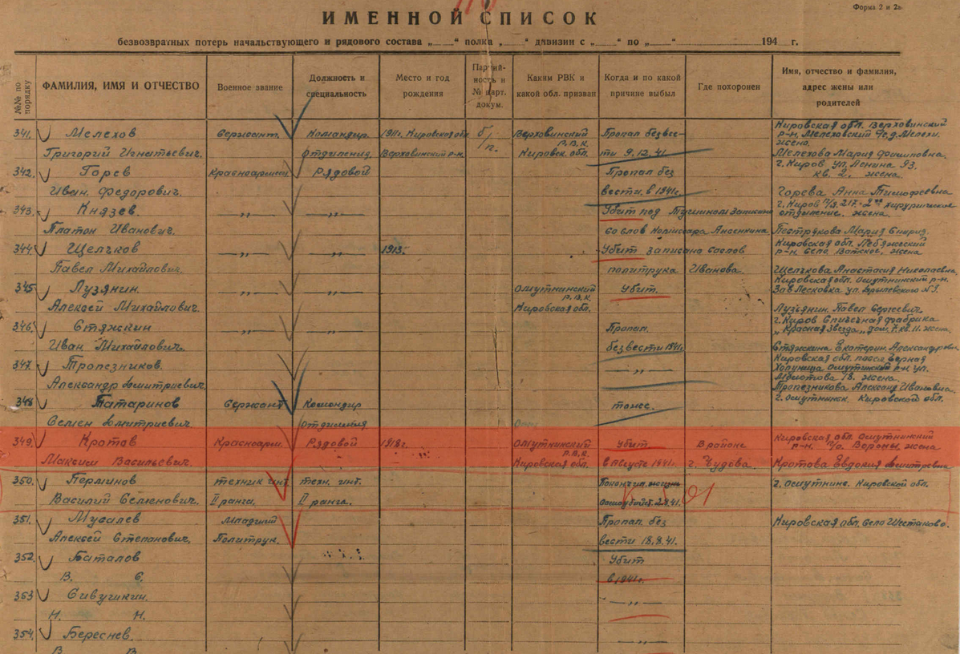 Форма 2 и 2а
ИМЕННОЙ СПИСОК
безвозвратных потерь начальствующего и рядового состава „ “ полка, „ “ дивизии с „ “ по „ “ 194 г.
№№ по порядку ФАМИЛИЯ, ИМЯ И ОТЧЕСТВО Военное звание Должность и специальность Место и год рождения Партийность и № парт. докум. Каким РВК и какой обл. призван Когда и по какой причине выбыл Где похоронен Имя, отчество и фамилия, адрес жены или родителей
341. Мелехов Сержант. Командир 1911г. Кировская обл. б/п. Верховинский Р.В.К. Пропал безвес- Кировская обл. Верховинский
Григорий Игнатьевич. отделения Верховинский р-н Кировск. обл. ти 9.12.41. жена. Мелехова Мария
342. Горев Красноармеец Рядовой Пропал без г. Киров ул. Ленина 93. кв. 2, жена
Иван Федорович. вести. в 1941г. Горева Анна Тимофеевна
343. Князев. —„— —„— Убит под г. Киров
Платон Иванович. со слов Комиссара отделение. жена. Мария
344. Щелчков —„— —„— 1913. Убит записано со слов Кировская обл. Лебяжский р-н село Ватское. жена
Павел Михайлович. политрука Иванова. Щелчкова Анастасия Николаевна,
345. Лузянин. —„— —„— Омутнинский Р.В.К. Убит. Кировская обл. Омутнинский р-н.
Алексей Михайлович Кировская обл. Павел Сергеевич
346. Стяжкин —„— Пропал. г. Киров Спичечная фабрика „Красная Звезда„ дом. 7. кв. 11. жена
Иван Михайлович. безвести 1941г. Стяжкина Екатерина Александровна
347. Трапезников. —„— Кировская обл. посел. Черная Холуница Омутнинский р-н ул.
Александр Дмитриевич 18. жена. Трапезникова Иванавна
348. Татаринов Сержант Командир тоже. г. Омутнинск. Кировской обл.
Семен Дмитриевич. отделения
349. Кротов Красноарм. Рядовой 1918г. Омутнинский Р.В.К. Убит В районе Кировская обл. Омутнинский р-н. п/о Вороны, жена
Максим Васильевич. Кировская обл. в Августе 1941г. г. Чудова. Кротова Евдокия Дмитриевна
350. техник инт. техн. инт. Покончил жизнь г. Омутнинск. Кировской обл.
Василий Семенович. II ранга. II ранга.
351. Мусалев Младший Пропал без Кировская обл. село Шестаково.
Алексей Степанович. Политрук. вести 18.8.41.
352. Баталов Убит
В. С. в 1941г.
353 Сивушкин. —„—
Н. Н.
354. Береснев. —„—
В. В.